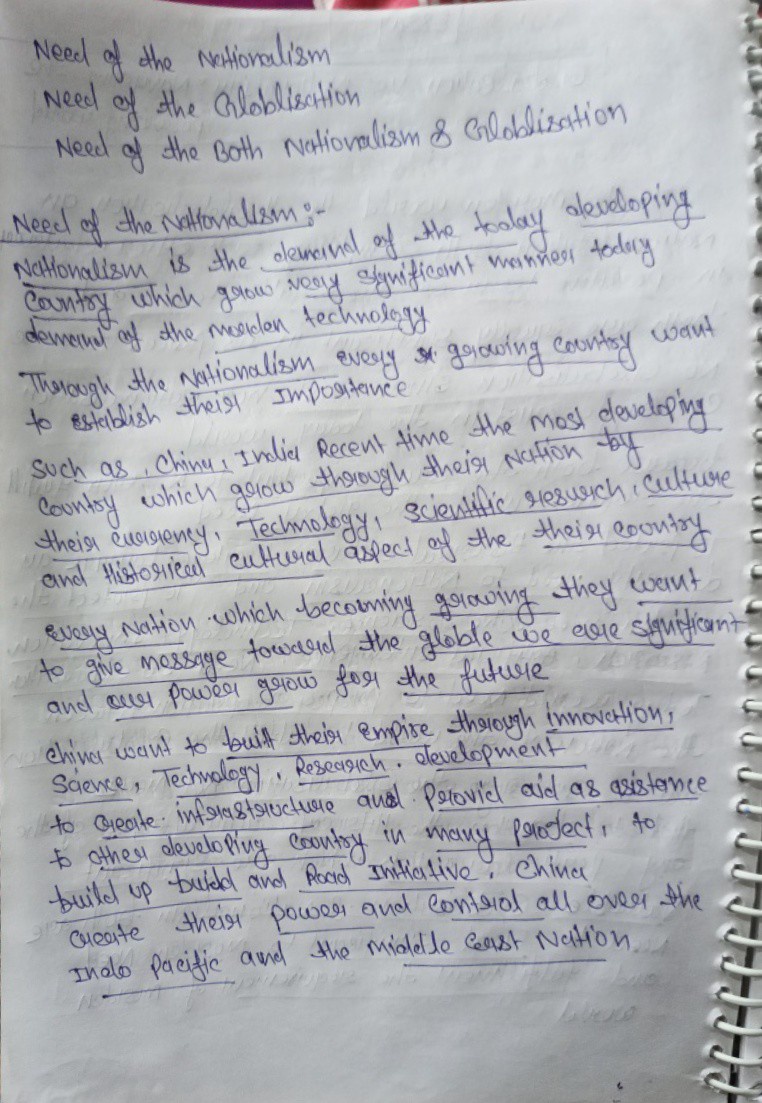 Need of the Nationalism
Need of the Globlisation
Need of the Both Nationalism & Globlisation
Need of the Nationalism:-
Nationalism is the demand of the today developing
Country which grow very significant manner today
demand of the morden technology
Through the Nationalism every growing country want
to establish their Importance.
such as, China, India Recent time the most developing
Country which grow through their Nation by
their currency, Technology, scientific reserch, culture
and Historical cultural aspect of the their country
every Nation which becoming growing they want
to give message toward the globle we are significant
and our power grow for the future
china want to built their empire through innovation,
Science, Technology, Research, development
to create infrastructure and Provid aid as asistence
to other developing country in many project, to
build up build and Road Initiative. China
create their power and control all over the
Indo Pacific and the middle East Nation.